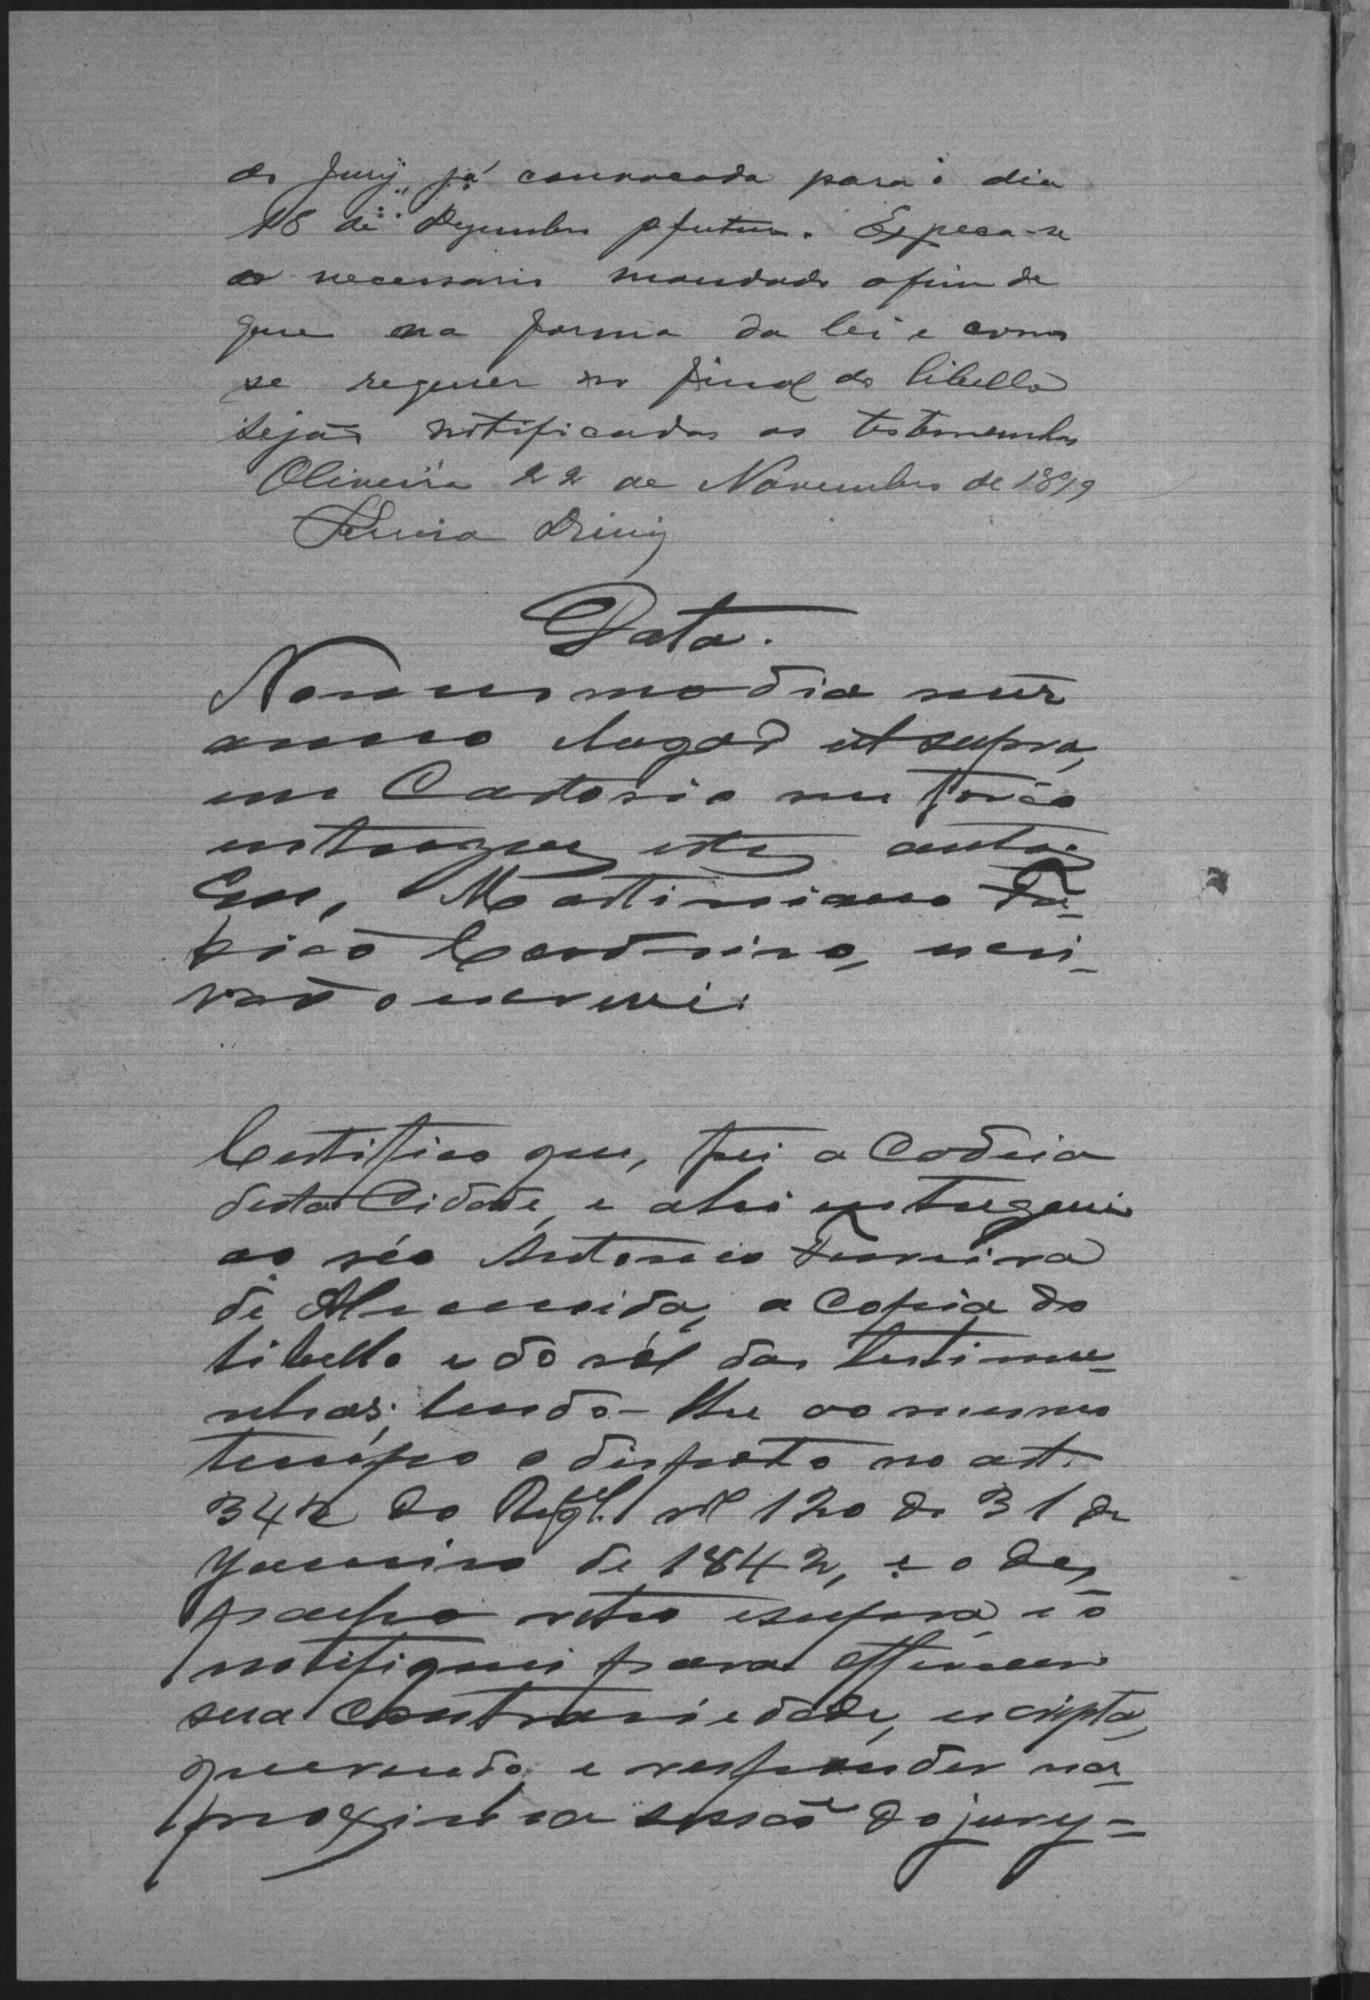 do Jury, já convocada para o dia
18 de Dezembro p futuro. Expeça-se
o necessario mandado afim de
que na forma da lei e como
se requer no final do libello
sejão notificadas as testemunhas
Oliveira 22 de Novembro de 1899
Data.
No mesmo dia mez
anno e lugar ut supra,
em Cartorio me forão
entregues estes autos
Eu, Martiniano
escri-
vão o escrevi.
Certifico que, fui a Cadeia
desta Cidade, e ahi entreguei
ao réo Antonio Ferreira
de Almeida, a Copia do
libello e do rol das testimu-
nhas; lendo-lhe ao mesmo
tempo o disposto no art.
342 do Regl. nº 120 de 31 de
Janeiro de 1842, e o des
pacho retro e supra e o
notifiquei para offerecer
sua contrariedade, escripta,
querendo, e responder na
proxima sessão do jury=